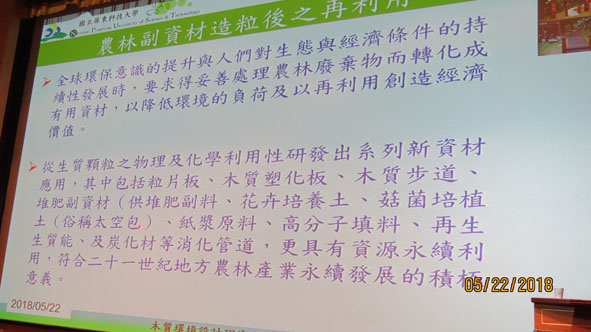 國立屏東科技大學
National Pingtung University of Science & Technology
農林副資材造粒後之再利用
全球環保意識的提升與人們對生態與經濟條件的持
續性發展時，要求得妥善處理農林廢棄物而轉化成
有用資材，以降低環境的負荷及以再利用創造經濟
價值。
從生質顆粒之物理及化學利用性研發出系列新資材
應用，其中包括粒片板、木質塑化板、木質步道、
堆肥副資材（供堆肥副料、花卉培養土、菇菌培植
土（俗稱太空包）、紙漿原料、高分子填料、再生
生質能、及炭化材等消化管道，更具有資源永續利
用，符合二十一世紀地方農林產業永續發展的積極
意義。
05/22/2018
2018/05/22
木質環境設計研